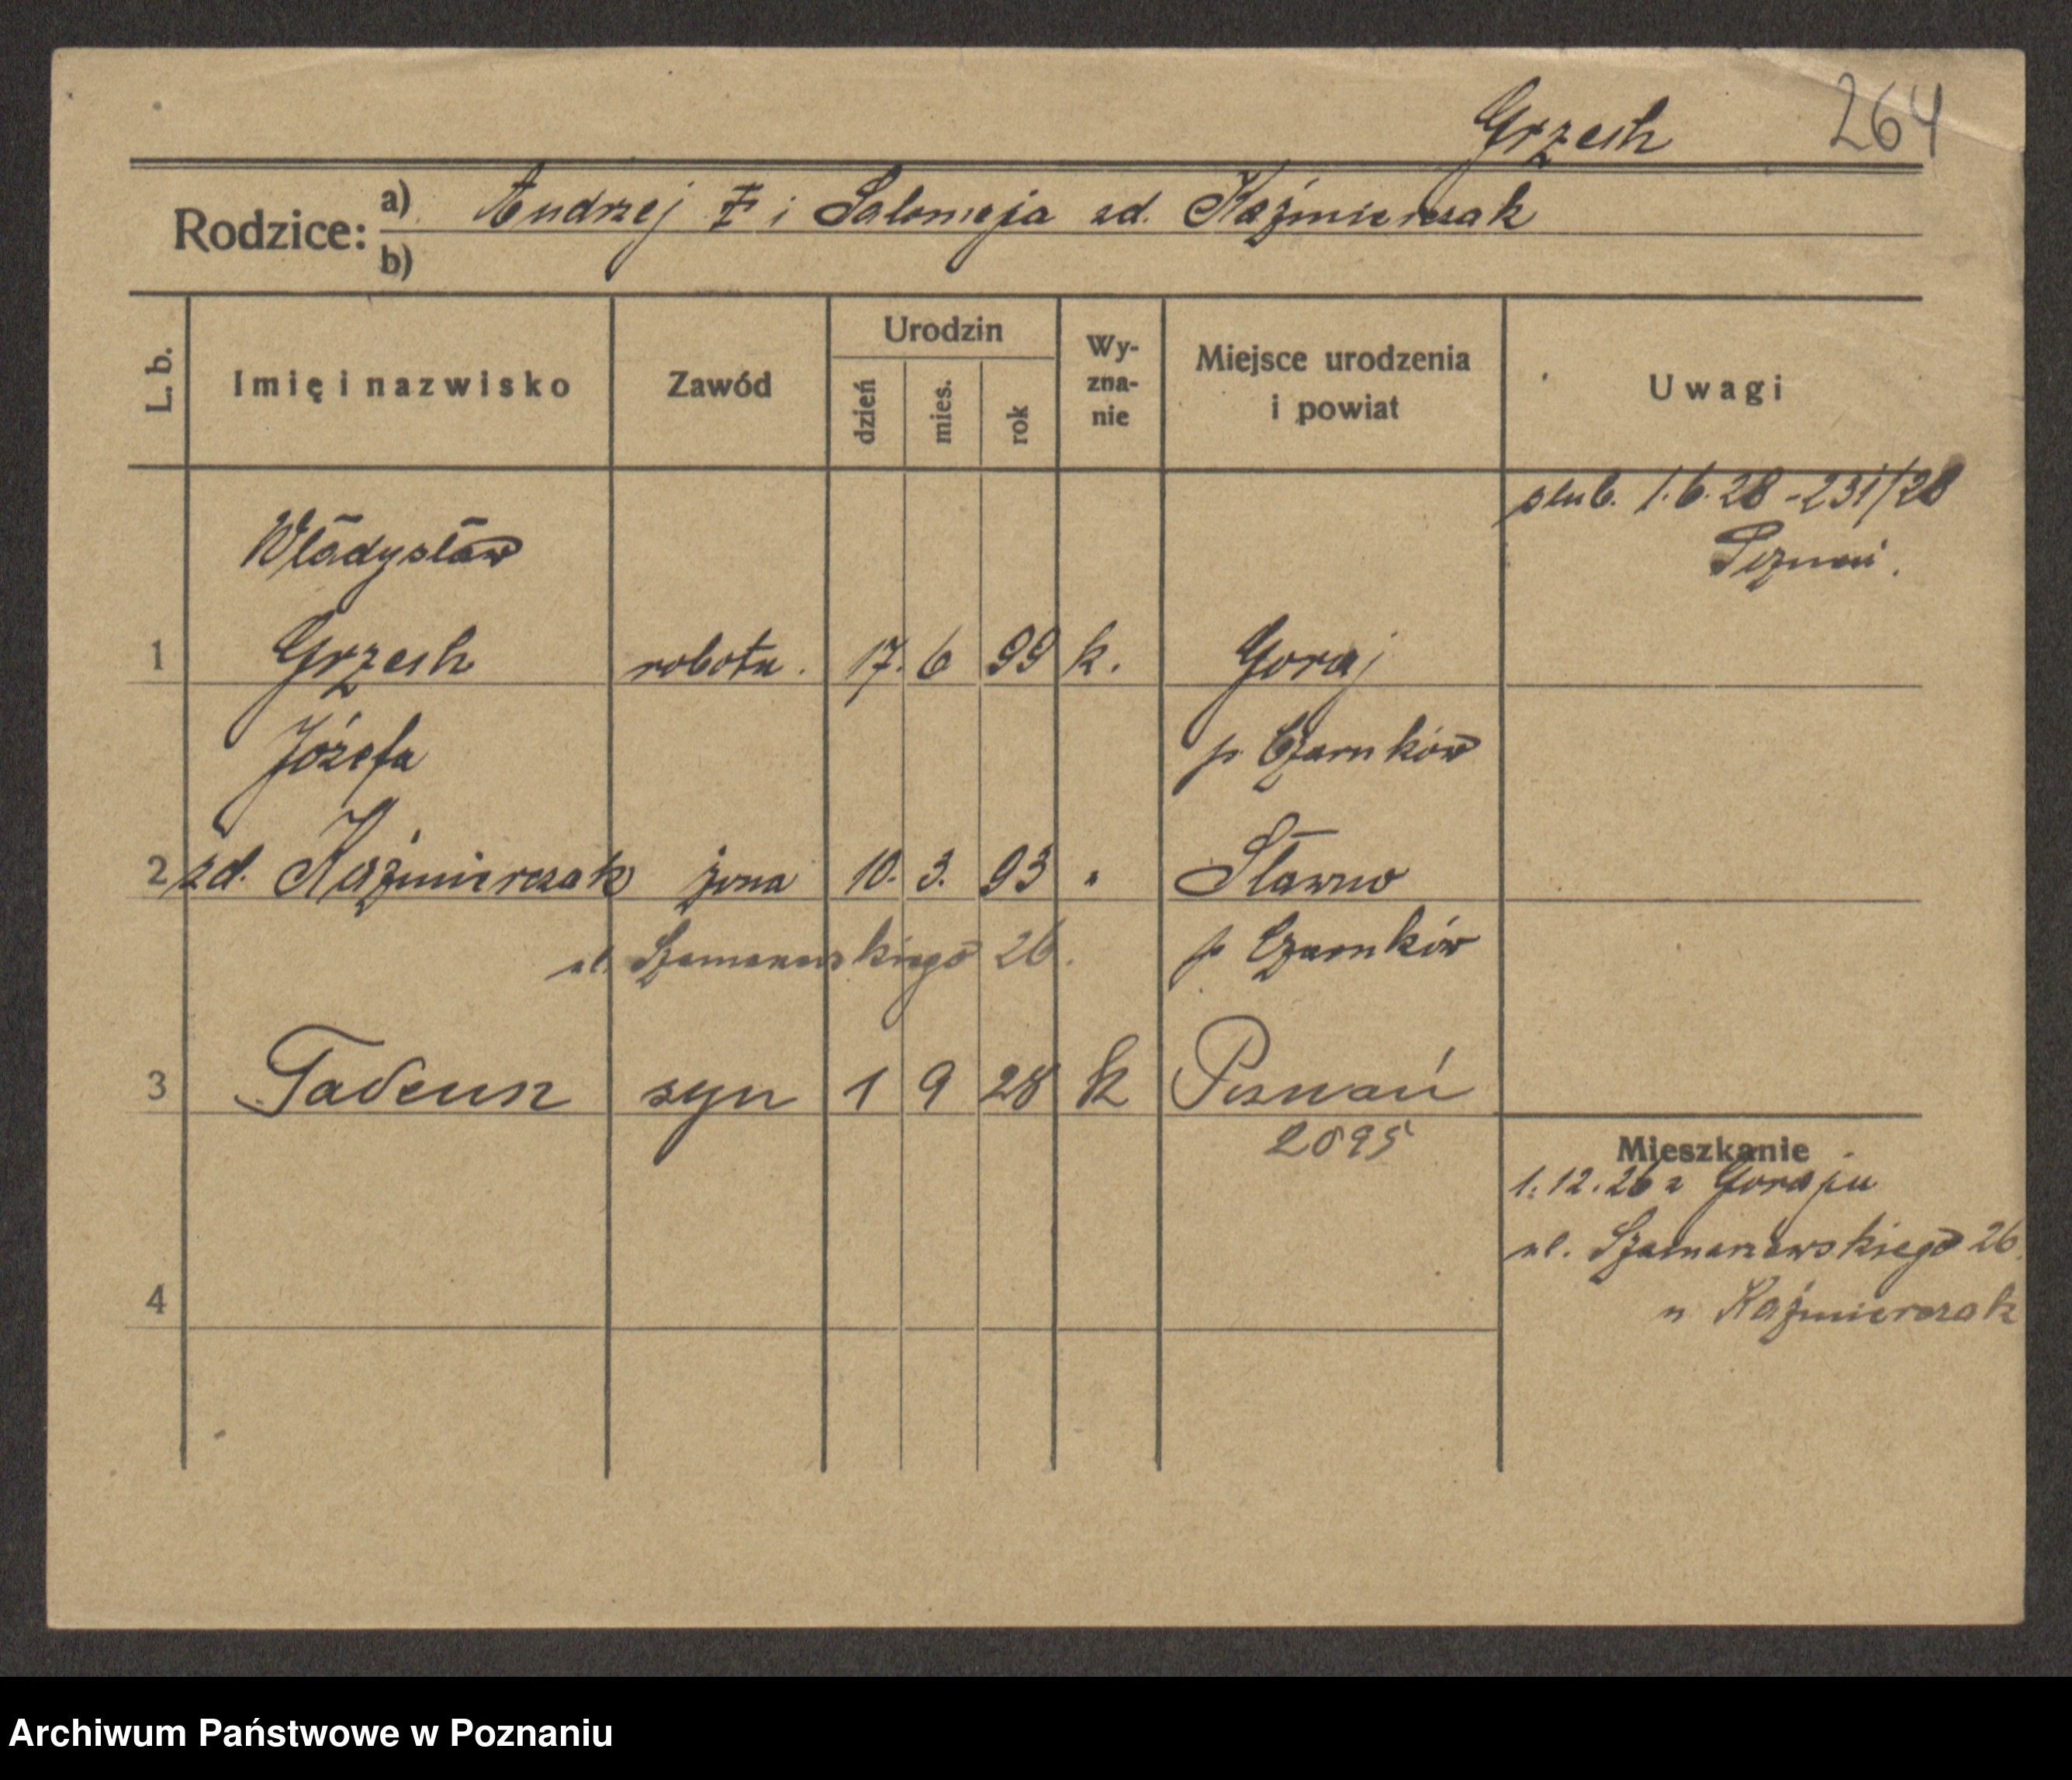 Grzech 264
Rodzice: a) Andrzej ‡ i Salomeja zd. Kaźmierczak
b)
L. b. Imię i nazwisko Zawód Urodzin dzień mies. rok Wyznanie Miejsce urodzenia i powiat Uwagi
ślub. 1.6.28 - 231/28
Poznań.
Władysław
1 Grzech robotn. 17. 6 99 k. Goraj
Józefa p. Czarnków
2 zd. Kaźmierczak żona 10. 3. 93 " Sławno
ul. Szamarzewskiego 26. p Czarnków
3 Tadeusz syn 1 9 28 k Poznań
2095
Mieszkanie
1.12.26 z Goraju
ul. Szamarzewskiego 26.
4
u Kaźmierczak
Archiwum Państwowe w Poznaniu